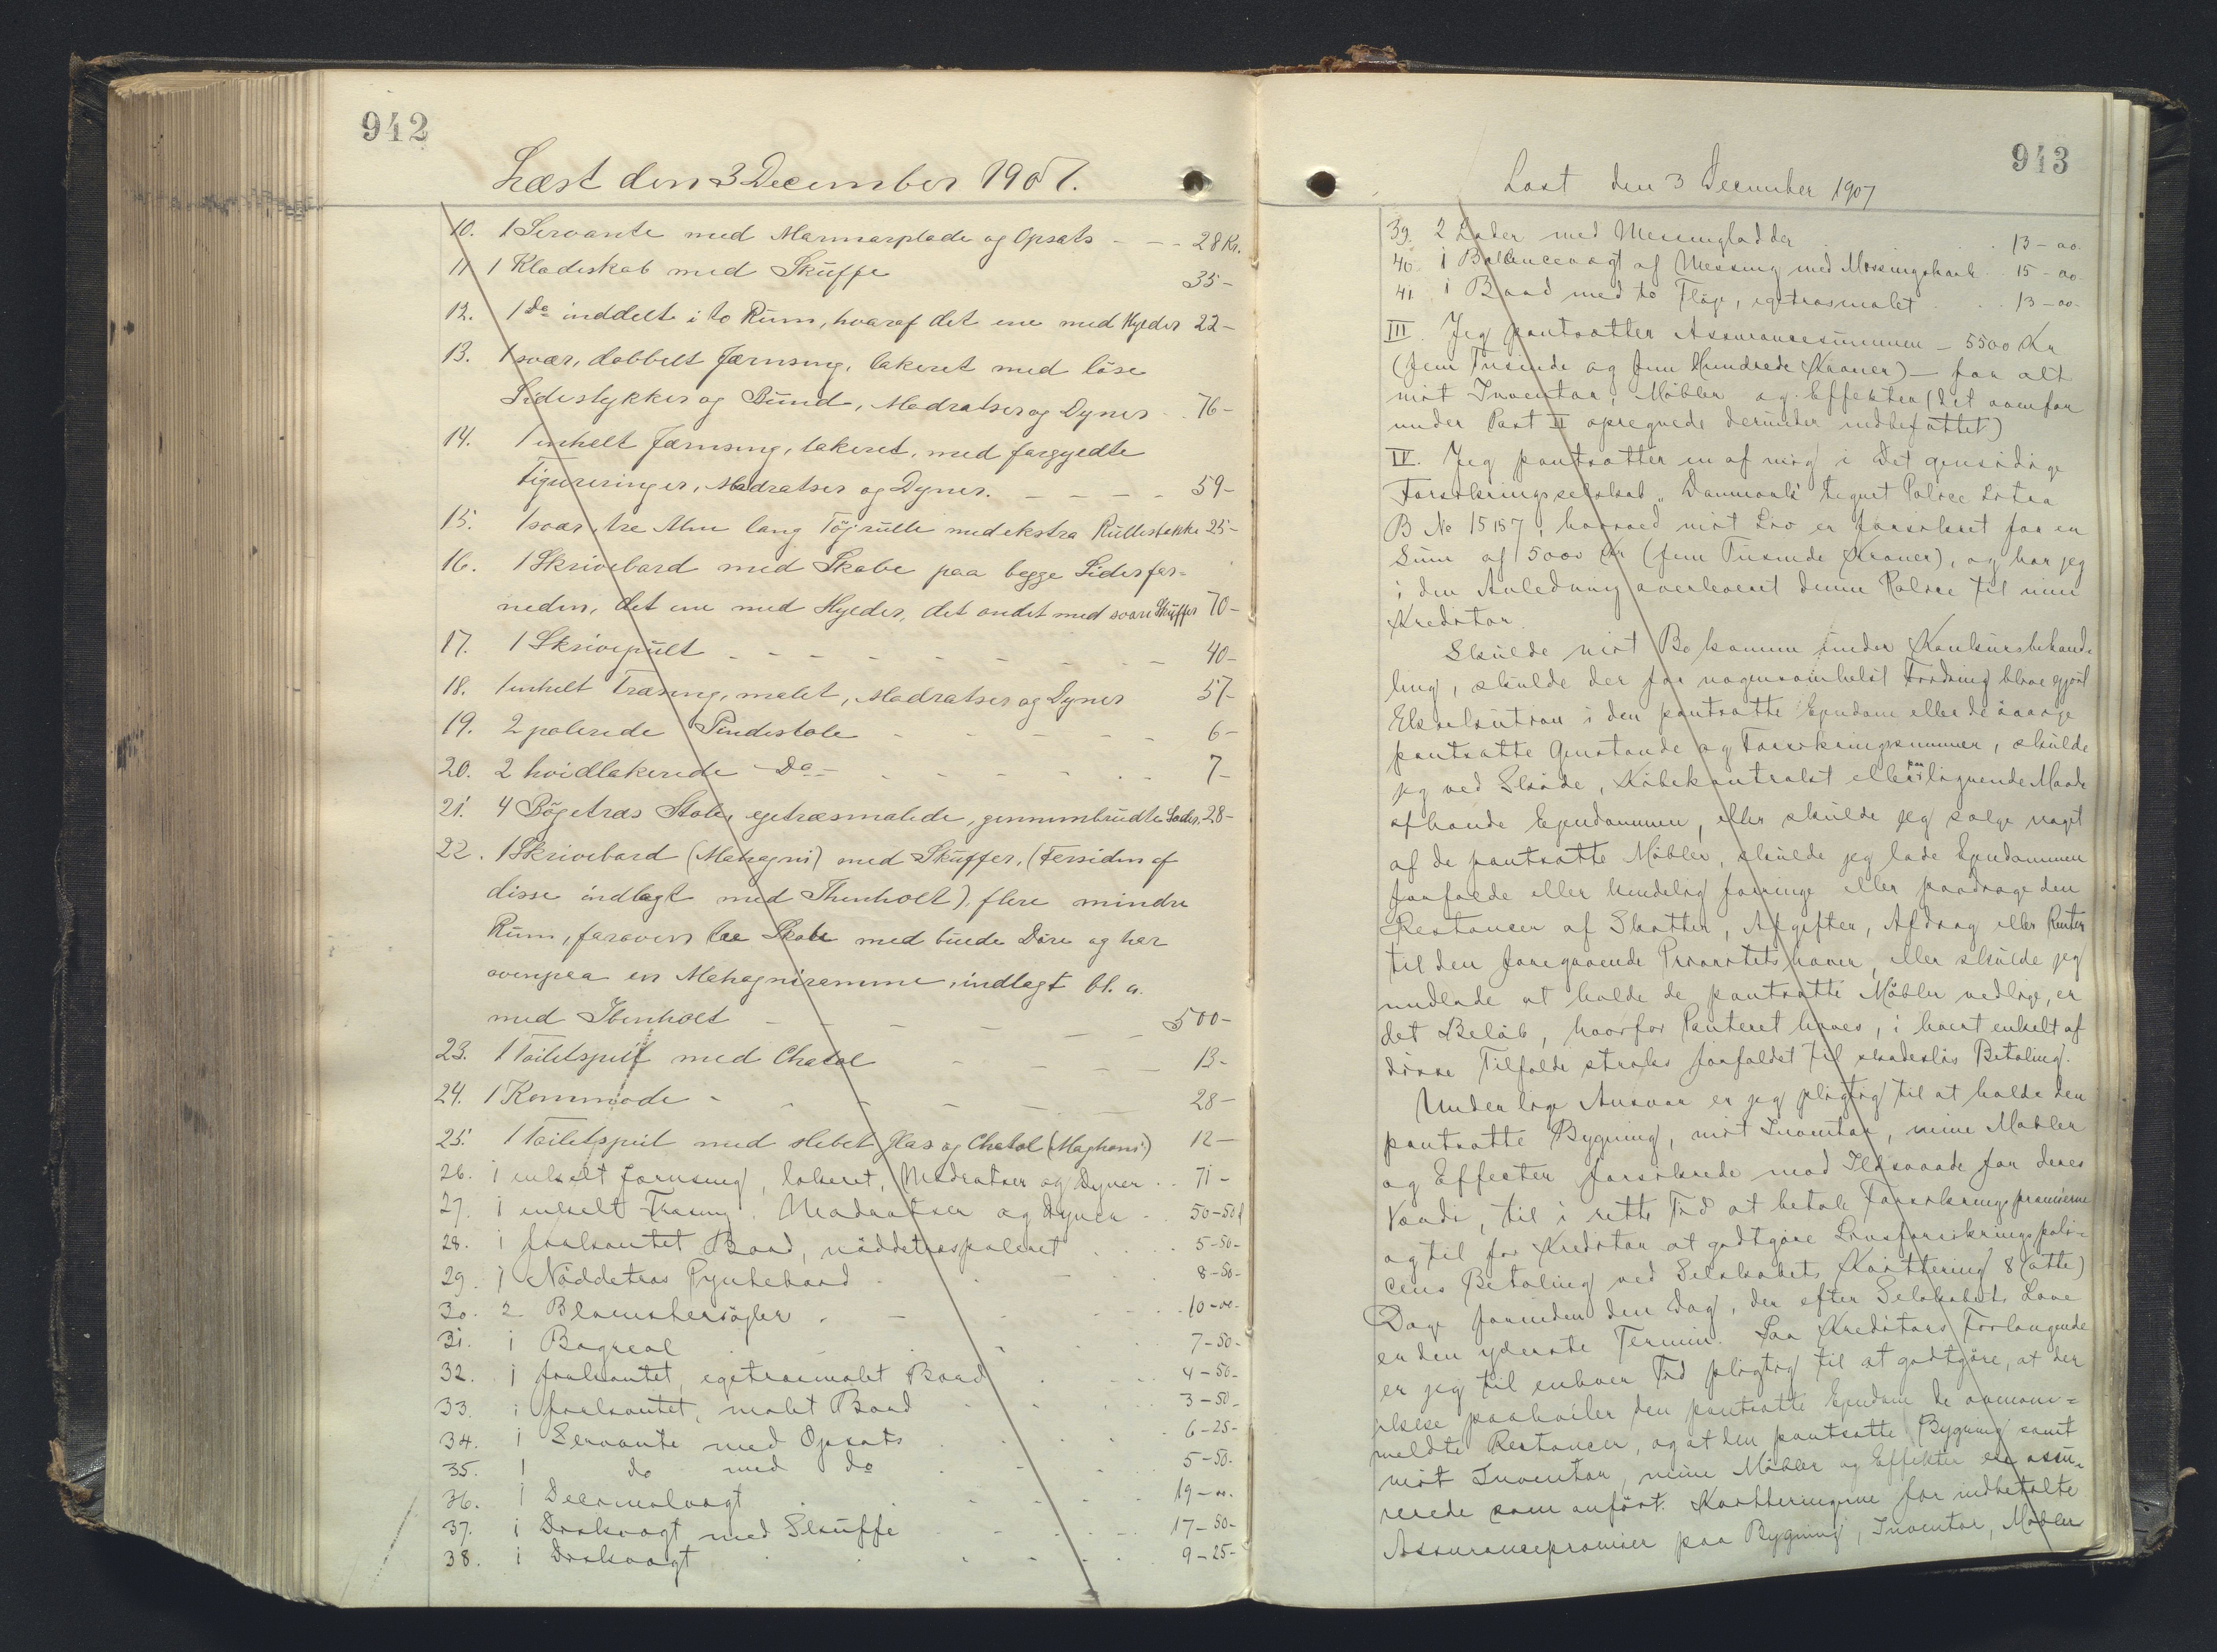 942
Læst den 3 December 1907.
10. 1 Servante med Marmorplade og Opsats - - - 28 Kr.
11 1 Klædeskab med Skuffe 35-
12. 1 do inddelt i to Rum, hvoraf det ene med Hylder 22-
13. 1 svær, dobbelt Jærnseng, lakeret med løse
Sidestykker og Bund, Madratser og Dyner .. 76-
14. 1 enkelt Jærnseng, lakeret, med forgyldte
Figureringer, Madratser og Dyner. - - - - 59-
15. 1 svær, tre Alen lang Tøjrulle med ekstra Rullestokke 25-
16. 1 Skrivebord med Skabe paa begge Sider for=
neden, det ene med Hylder, det andet med svære Skuffer 70-
17. 1 Skrivepult - - - - - - - 40-
18. 1 enkelt Træseng, malet, Madratser og Dyner 57-
19. 2 polerede Pindestole - - - - - 6-
20. 2 hvidlakerede Do- - - - - - 7-
21. 4 Bøgetræs Stole, egetræsmalede, gennembrudte Sæder. 28-
22. 1 Skrivebord (Mahogni) med Skuffer, (Forsiden af
disse indlagt med Ibenholt), flere mindre
Rum, foroven tre Skabe med buede Døre og har
ovenpaa en Mahogniramme, indlagt bl. a.
med Ibenholt - - - - - 500-
23. 1 Toiletspejl med Chatol - - - - 13-
24. 1 Kommode - - - - - - 28-
25. 1 Toiletspejl med slebet Glas og Chatol (Maghoni) 12-
26. 1 enkelt Jærnseng, lakeret, Madratser og Dyner .. 71-
27. 1 enkelt Træseng. Madratser og Dyner . 50-50
28. 1 firkantet Bord, nøddetræspoleret . . . . 5-50-
29. 1 Nøddetræs Pyntebord . . - . 8-50-
30. 2 Blomstersøjler . - . . . 10-00-
31. 1 Bogreol . . . . . 7-50-
32. 1 firkantet, egetræsmalet Bord . . . 4-50-
33. 1 firkantet, malet Bord . . . . 3-50-
34. 1 Servante med Opsats . . . . 6-25-
35. 1 do med do . . . . 5-50-
36. 1 Decimalvægt . . . . . 19-00.
37. 1 Diskvægt med Skuffe . . . . 17-50-
38. 1 Diskvægt . . . . . 9-25-
943
Læst den 3 December 1907
39. 2 Lader med Messinglodder . . . 13-00.
40 1 Ballancevægt af Messing med Messingskaale . . 15-00-
41 1 Bord med to Fløje, egetræsmalet . . . 13-00-
III. Jeg pantsætter Assurancesummen - 5500 Kr
(fem Tusinde og fem Hundrede Kroner) - for alt
mit Inventar, Møbler og Effekter (det ovenfor
under Post II opregnede derunder indbefattet)
IV. Jeg pantsætter en af mig i Det gensidige
Forsikringsselskab "Danmark" tegnet Police Litra
B No 15157, hvorved mit Liv er forsikret for en
Sum af 5000 Kr (fem Tusinde Kroner), og har jeg
i den Anledning overleveret denne Police til min
Kreditor.
Skulde mit Bo komme under Konkursbehand-
ling, skulde der for nogensomhelst Fordring blive gjort
Eksekution i den pantsatte Ejendom eller de øvrige
pantsatte Genstande og Forsikringssummer, skulde
jeg ved Skøde, Købekontrakt eller paa lignende Maade
afhænde Ejendommen, eller skulde jeg sælge noget
af de pantsatte Møbler, skulde jeg lade Ejendommen
forfalde eller kendelig forringe eller paadrage den
Restancer af Skatter, Afgifter, Afdrag eller Renter
til den foregaaende Prioritetshaver, eller skulde jeg
undlade at holde de pantsatte Møbler vedlige, er
det Beløb, hvorfor Panteret haves, i hvert enkelt af
disse Tilfælde straks forfaldet til skadesløs Betaling.
Under lige Ansvar er jeg pligtig til at holde den
pantsatte Bygning, mit Inventar, mine Møbler
og Effecter forsikrede mod Ildsvaade for deres
Værdi, til i rette Tid at betale Forsikringspræmierne
og til for Kreditor at godtgøre Livsforsikringspoli=
cens Betaling ved Selskabets Kvittering 8 (otte)
Dage forinden den Dag, der efter Selskabets Love
er den yderste Termin. Paa Kreditors Forlangende
er jeg til enhver Tid pligtig til at godtgøre, at der
ikke paahviler den pantsatte Ejendom de ovenom=
meldte Restancer, og at den pantsatte Bygning samt
mit Inventar, mine Møbler og Effekter er assu=
rerede som anført. Kvitteringerne for indbetalte
Assurancepræmier paa Bygning, Inventar, Møbler